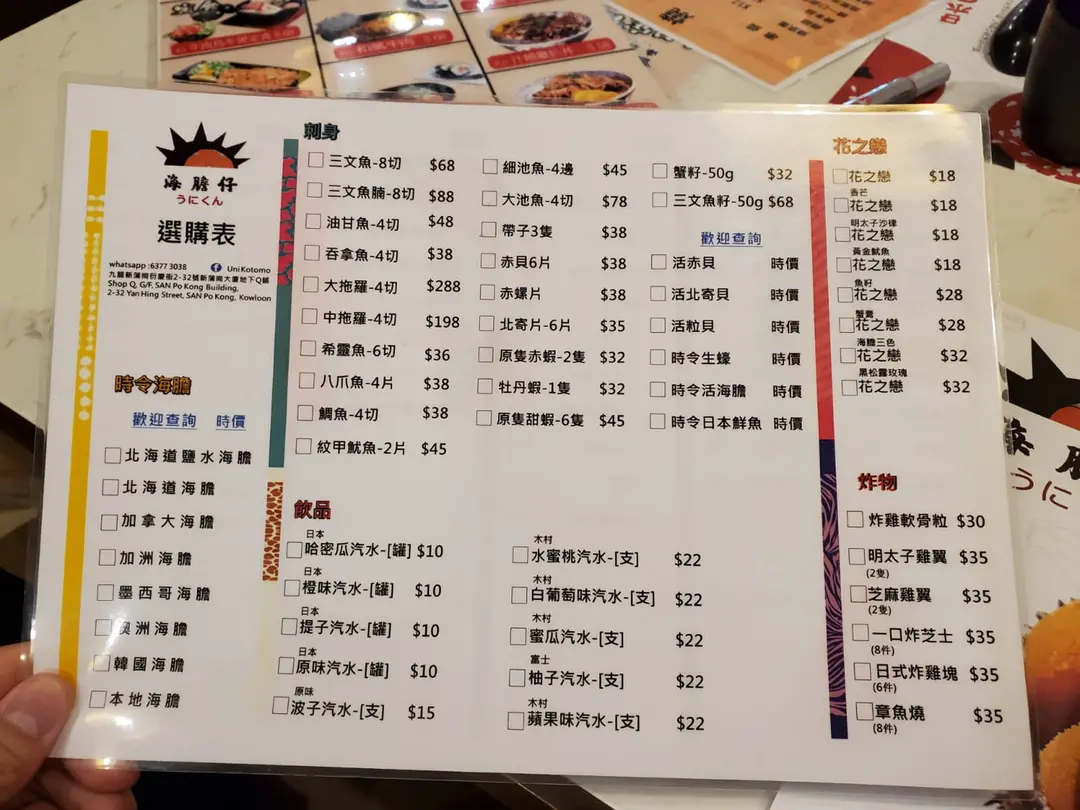 海膽仔
うにくん
選購表
whatsapp :6377 3038 Uni Kotomo
九龍新蒲崗衍慶街2-32號新蒲崗大廈地下Q舖
Shop Q, G/F, SAN Po Kong Building,
2-32 Yan Hing Street, SAN Po Kong, Kowloon
時令海膽
歡迎查詢 時價
北海道鹽水海膽
北海道海膽
加拿大海膽
加洲海膽
墨西哥海膽
澳洲海膽
韓國海膽
本地海膽
刺身
三文魚-8切 $68
三文魚腩-8切 $88
油甘魚-4切 $48
吞拿魚-4切 $38
大拖羅-4切 $288
中拖羅-4切 $198
希靈魚-6切 $36
八爪魚-4片 $38
鯛魚-4切 $38
紋甲魷魚-2片 $45
細池魚-4邊 $45
大池魚-4切 $78
帶子3隻 $38
赤貝6片 $38
赤螺片 $38
北寄片-6片 $35
原隻赤蝦-2隻 $32
牡丹蝦-1隻 $32
原隻甜蝦-6隻 $45
蟹籽-50g $32
三文魚籽-50g $68
歡迎查詢
活赤貝 時價
活北寄貝 時價
活粒貝 時價
時令生蠔 時價
時令活海膽 時價
時令日本鮮魚 時價
飲品
日本
哈密瓜汽水-[罐] $10
日本
橙味汽水-[罐] $10
日本
提子汽水-[罐] $10
日本
原味汽水-[罐] $10
原味
波子汽水-[支] $15
木村
水蜜桃汽水-[支] $22
木村
白葡萄味汽水-[支] $22
木村
蜜瓜汽水-[支] $22
富士
柚子汽水-[支] $22
木村
蘋果味汽水-[支] $22
花之戀
花之戀 $18
香芒
花之戀 $18
明太子沙律
花之戀 $18
黃金魷魚
花之戀 $18
魚籽
花之戀 $28
蟹膏
花之戀 $28
海膽三色
花之戀 $32
黑松露玫瑰
花之戀 $32
炸物
炸雞軟骨粒 $30
明太子雞翼 $35
(2隻)
芝麻雞翼 $35
(2隻)
一口炸芝士 $35
(8件)
日式炸雞塊 $35
(6件)
章魚燒 $35
(8件)
うに